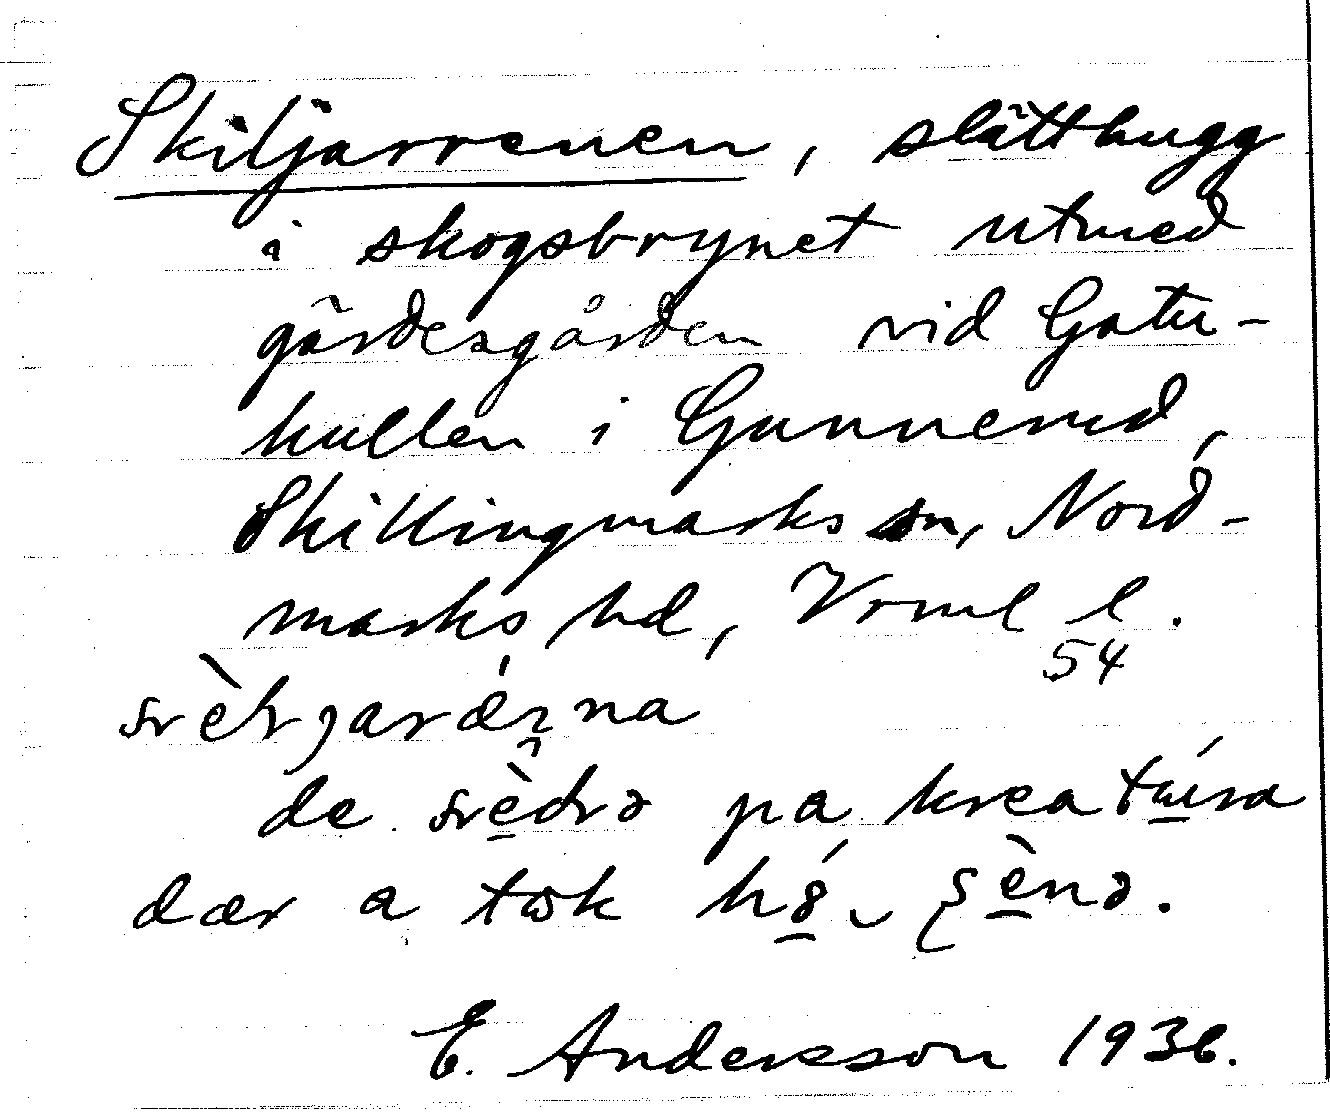 Skiljarrenen, slätthugg
i skogsbrynet utmed
gärdesgården vid Gatu-
kullen i Gunnerud,
Skillingmarks sn, Nord-
marks hd, Vrml l.
54
de på kreatúra
dær a tωk
E. Andersson 1936.